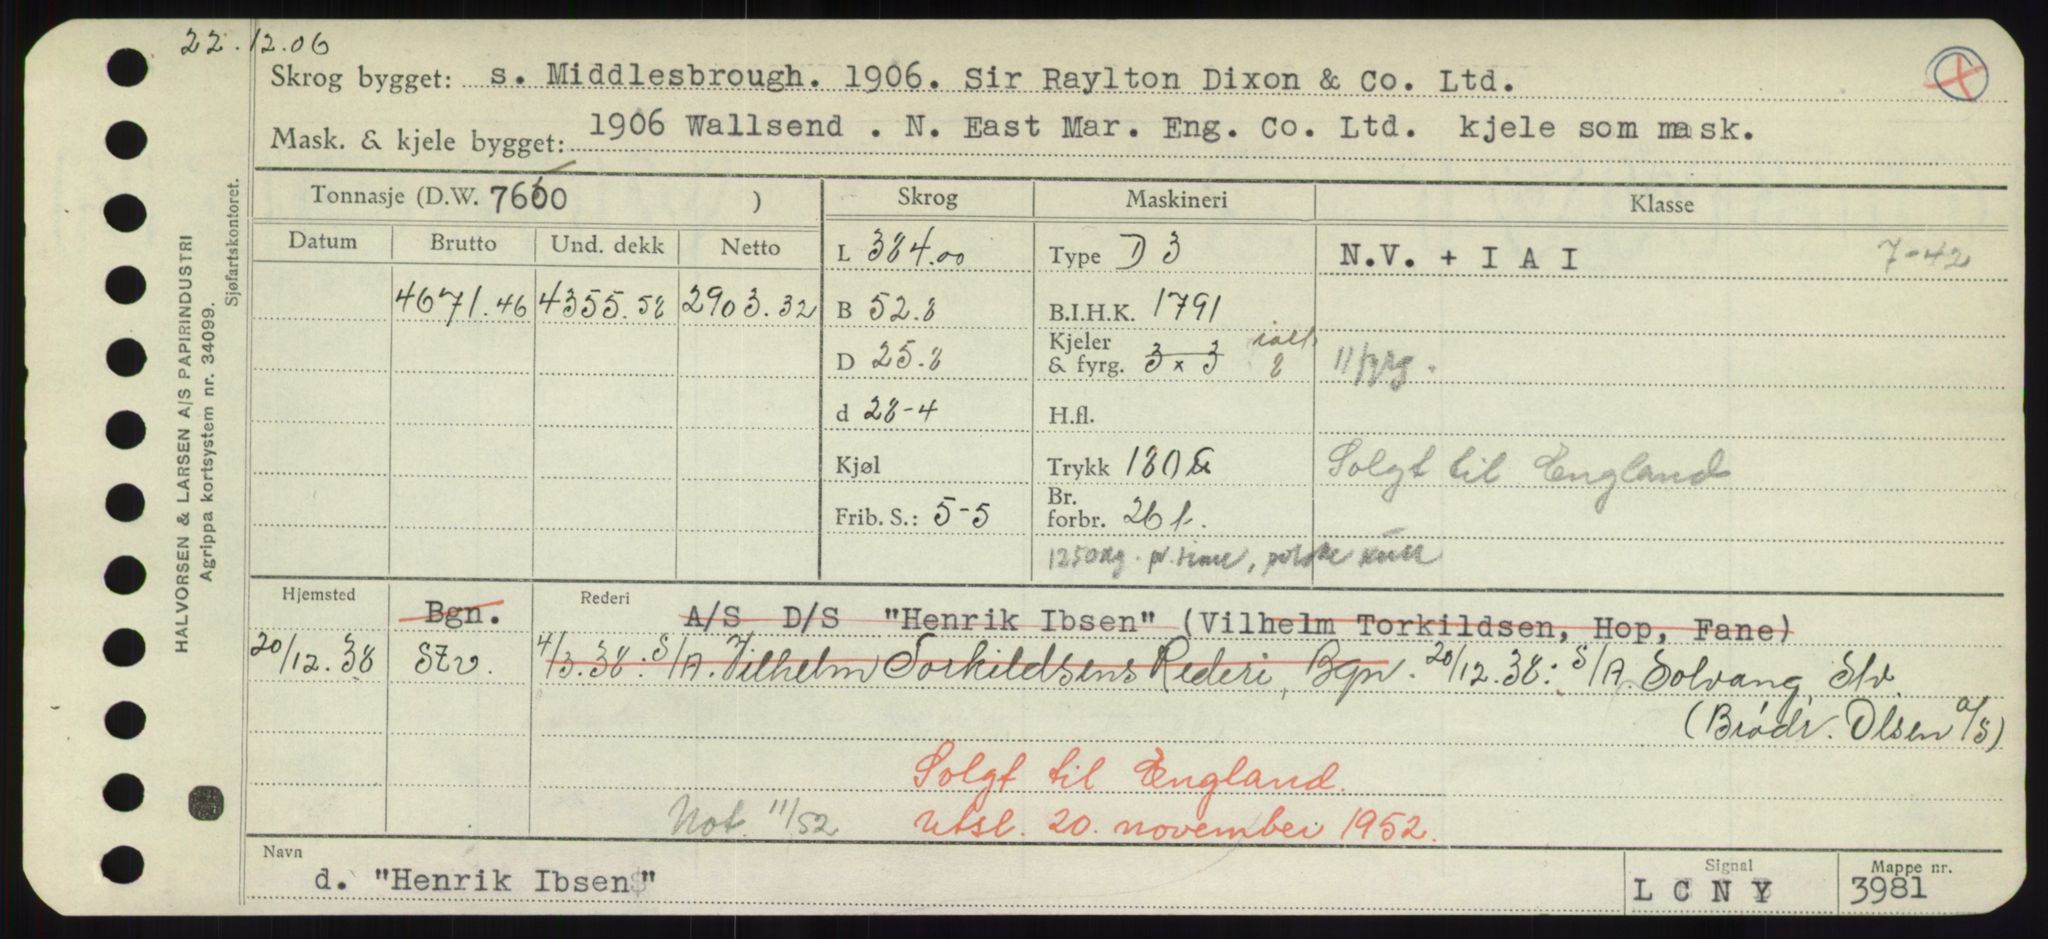 22.12.06
Skrog bygget: s. Middlesbrough. 1906. Sir Raylton Dixon & Co. Ltd.
Mask. & kjele bygget: 1906 Wallsend . N. East Mar. Eng. Co. Ltd. kjele som mask.
Tonnasje (D.W. 7600 ) Skrog Maskineri Klasse
Datum Brutto Und. dekk Netto L 384.00 Type D 3 N.V. + I A I 7-42
4671.46 4355.58 2903.32 B 52.8 B.I.H.K. 1791
D 25.8 Kjeler & fyrg. 3 x 3 ialt 8
d 28-4 H.fl.
Kjøl Trykk 180 Solgt til England
Frib. S.: 5-5 Br. forbr. 26 t.
1250 kg. pr. time, polske kull
Hjemsted Bgn. Rederi A/S D/S "Henrik Ibsen" (Vilhelm Torkildsen, Hop, Fane)
20/12.38 Stv. 4/3.38: S/A. Vilhelm Torkildsens Rederi, Bgn. 20/12.38: S/A. Solvang, Stv.
(Brødr. Olsen A/S)
Solgt til England.
Not. 11/52 Utsl. 20. november 1952.
Navn Signal Mappe nr.
d. "Henrik Ibsen" L C N Y 3981
HALVORSEN & LARSEN A/S PAPIRINDUSTRI
Agrippa kortsystem nr. 34099.
Sjøfartskontoret.